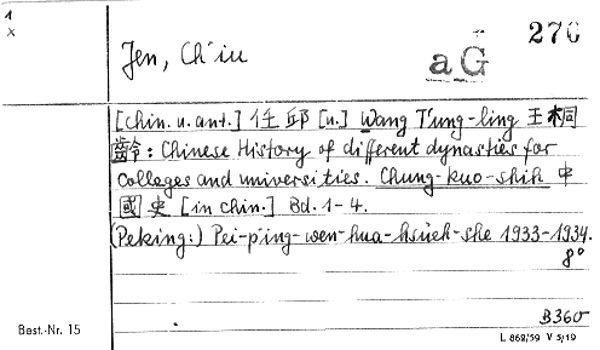 1
x
Jen, Ch'iu
aG
270
[chin. u. ant.] 任邱 [u.] Wang T'ung-ling 王桐
齡: Chinese History of different dynasties for
colleges and universities. Chung-kuo-shih 中
國史 [in chin.] Bd. 1-4.
(Peking:) Pei-p'ing-wen-hua-hsüeh-she 1933-1934.
8°
B360
Best.-Nr. 15
L 868/59 V 5/19